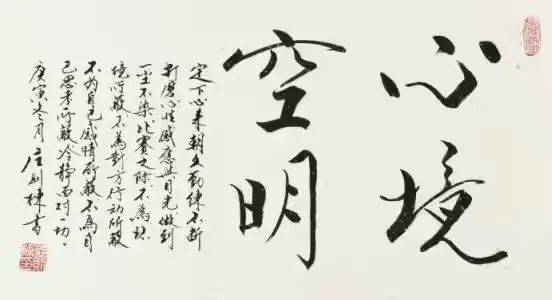 心境
空明
定下心来朝夕勤练不断
打磨心性感應与目光做到
一尘不染比赛之时不为环
境所蔽不為對方行动所蔽
不为自己感情所蔽不為自
己思考所蔽冷静面对一切。
庚寅冬月 庄则栋书